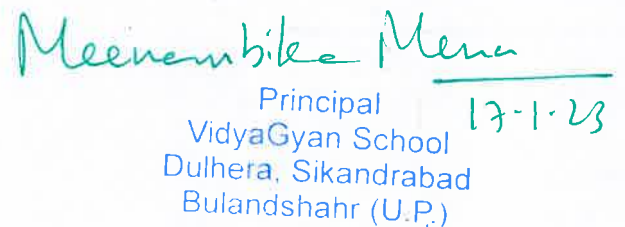 Meenambika Menon
17-1-23
Principal
VidyaGyan School
Dulhera, Sikandrabad
Bulandshahr (U.P.)